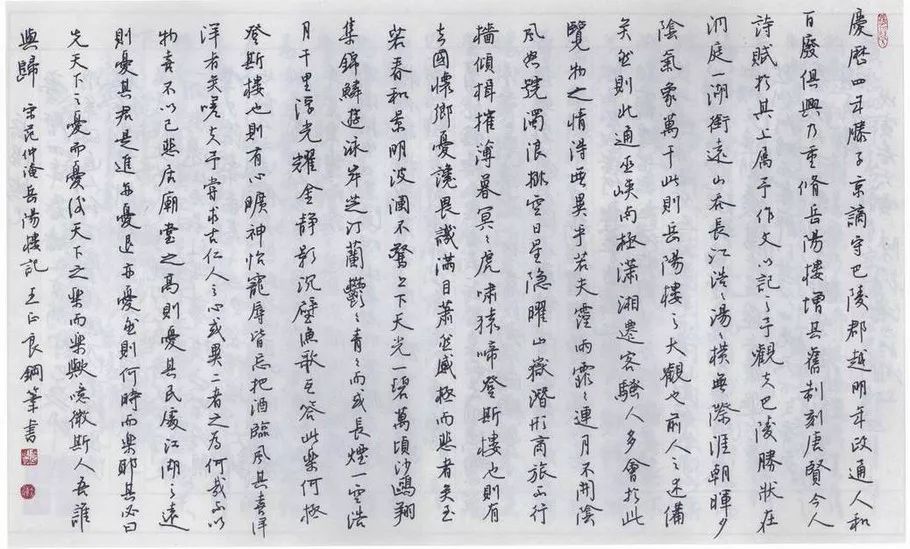 慶曆四年滕子京謫守巴陵郡越明年政通人和
百廢俱興乃重脩岳陽樓增其舊制刻唐賢今人
詩賦於其上屬予作文以記之予觀夫巴陵勝狀在
洞庭一湖銜遠山吞長江浩々湯々橫無際涯朝暉夕
陰氣象萬千此則岳陽樓之大觀也前人之述備
矣然則北通巫峽南極瀟湘遷客騷人多會於此
覽物之情得無異乎若夫霪雨霏々連月不開陰
風怒號濁浪排空日星隱曜山嶽潛形商旅不行
檣傾楫摧薄暮冥々虎嘯猿啼登斯樓也則有
去國懷鄉憂讒畏譏滿目蕭然感極而悲者矣至
若春和景明波瀾不驚上下天光一碧萬頃沙鷗翔
集錦鱗游泳岸芷汀蘭鬱々青々而或長煙一空浩
月千里浮光耀金靜影沉璧漁歌互答此樂何極
登斯樓也則有心曠神怡寵辱皆忘把酒臨風其喜洋
洋者矣嗟夫予嘗求古仁人之心或異二者之為何哉不以
物喜不以己悲居廟堂之高則憂其民處江湖之遠
則憂其君是進亦憂退亦憂然則何時而樂耶其必曰
先天下之憂而憂後天下之樂而樂歟噫微斯人吾誰
與歸 宋范仲淹岳陽樓記 王正良鋼筆書